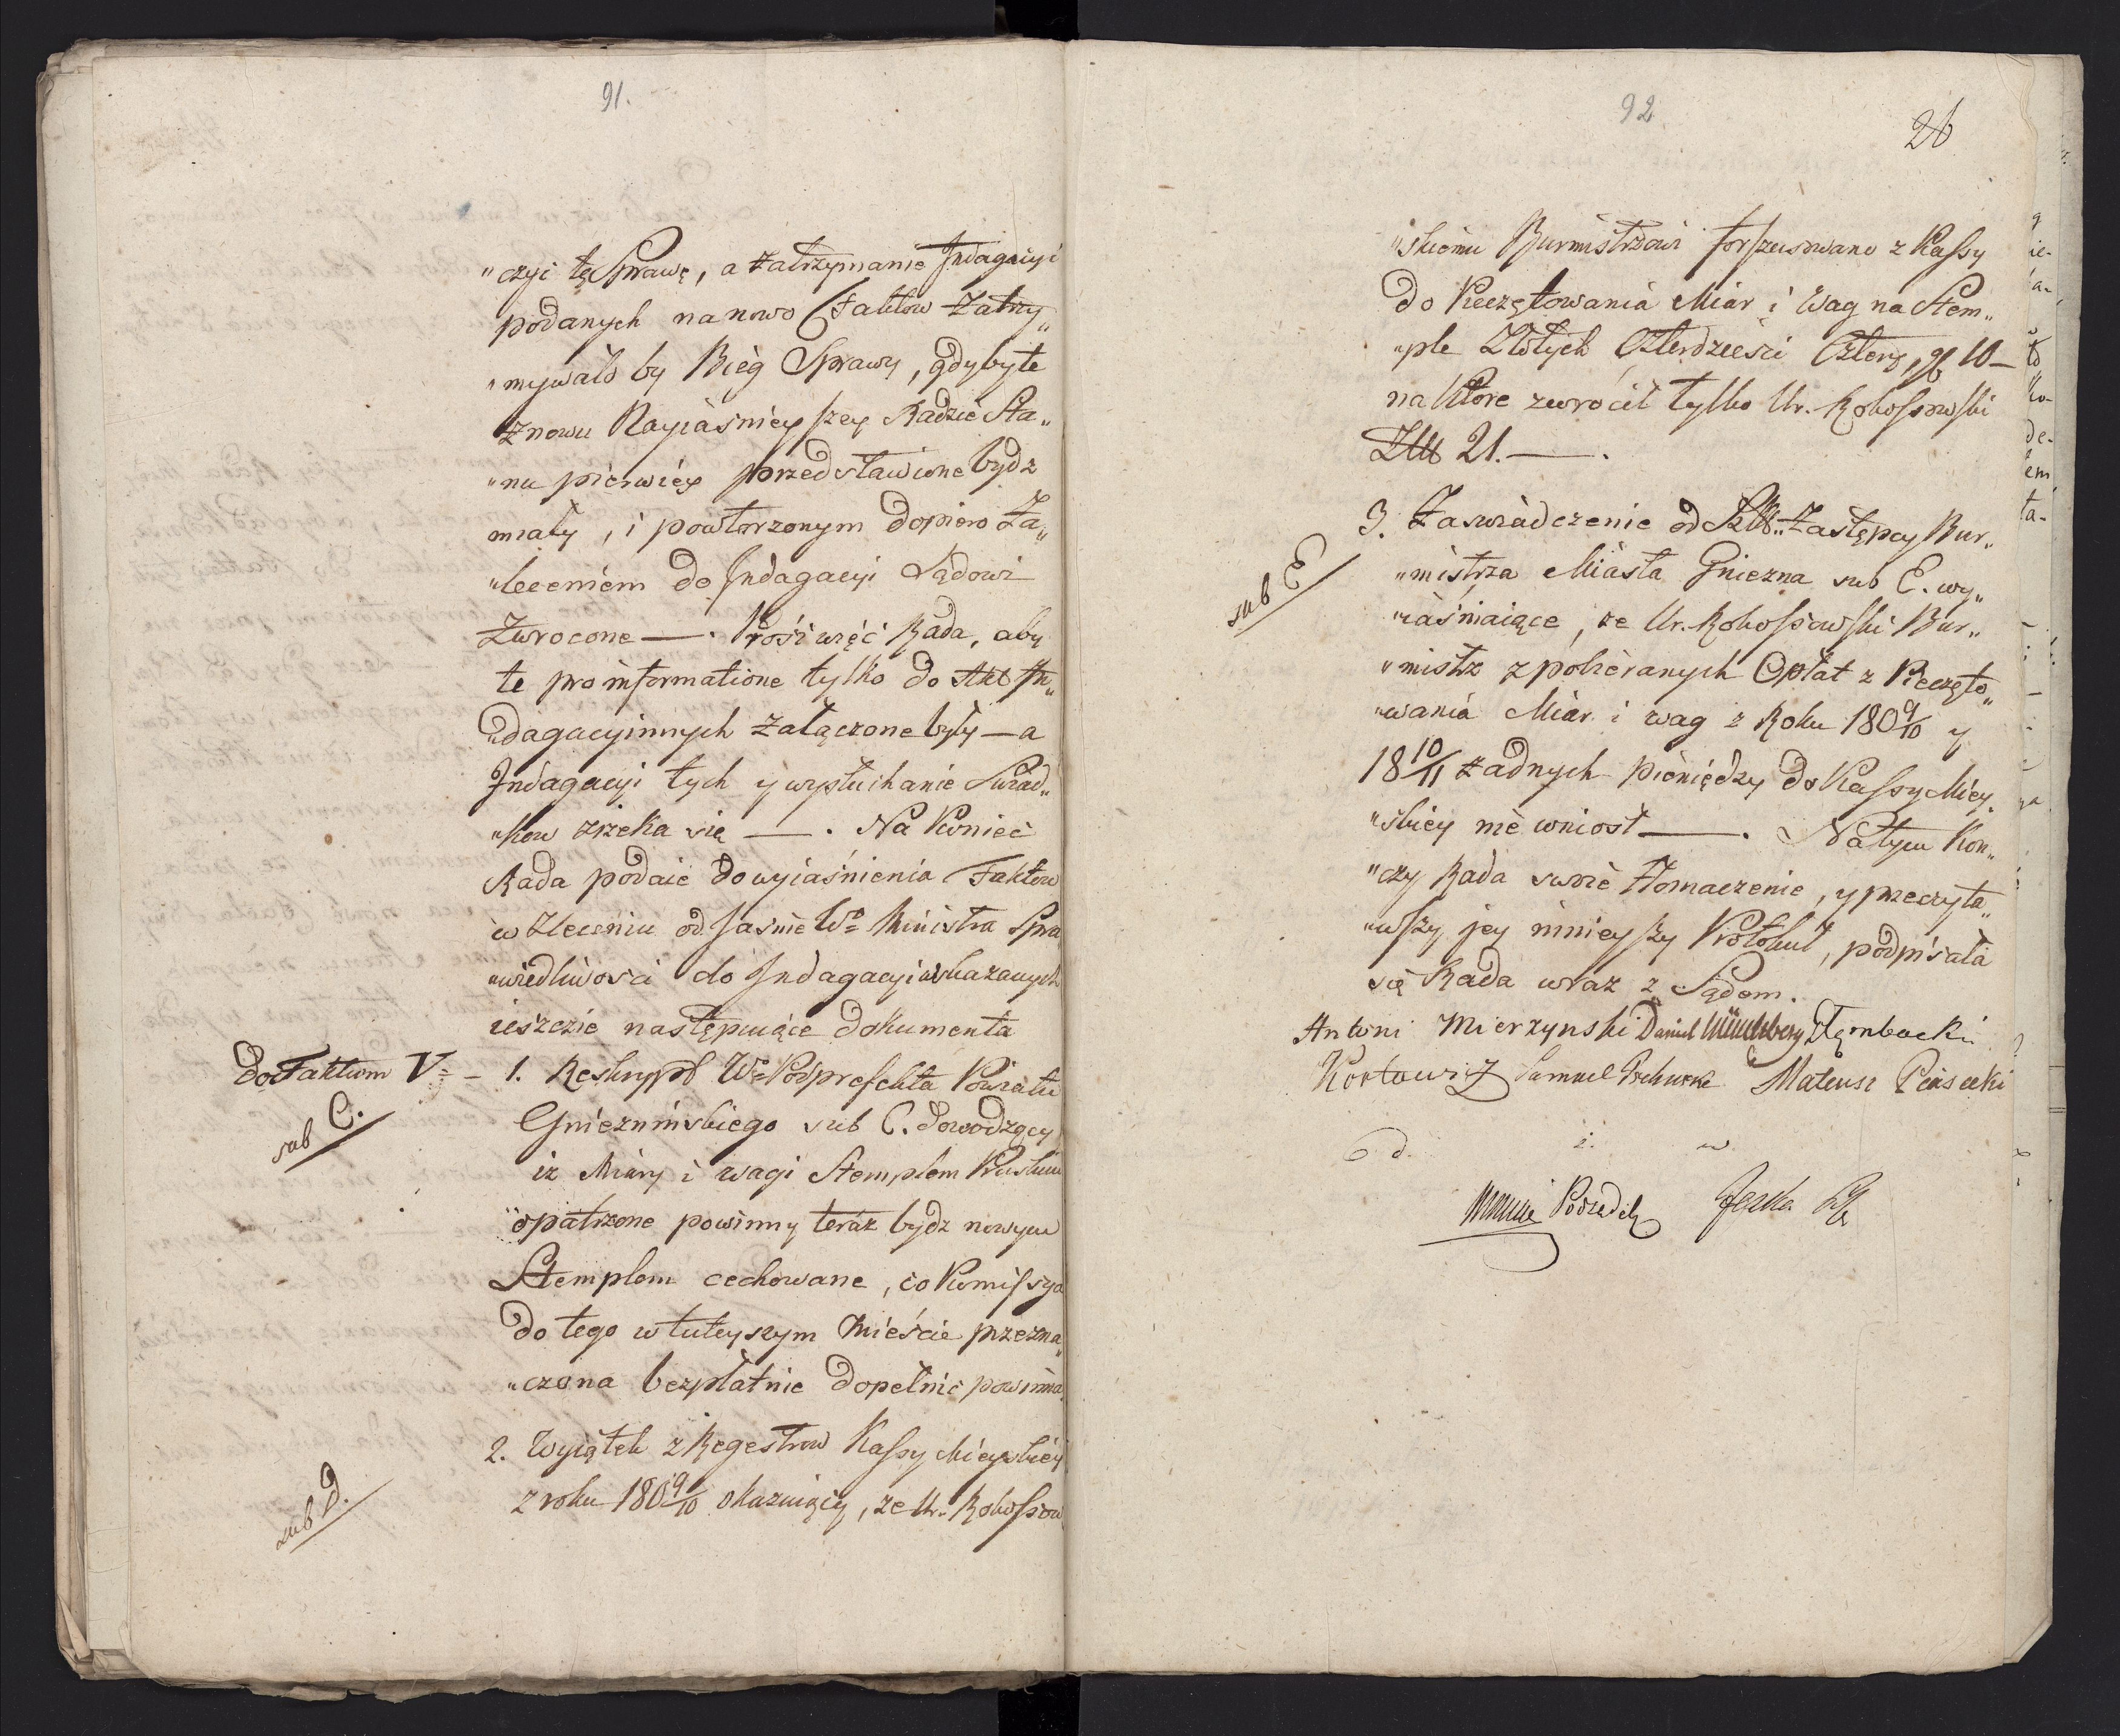 91.
"czyi tę Sprawę, a zatrzymanie Indagacyi
podanych na nowo Faktow Zatrzy„
"mywało by Bieg Sprawy, gdyby te
znowu Nayiaśnieyszey Radzie Sta„
"nu pierwiey przedstawione bydz
miały, i powtorzonym dopiero Za„
"leceniem do Indagacyi Sądowi
Zwrocone —. Prosi więc Rada, aby
te pro informatione tylko do Akt In„
"dagacyinnych załączone były — a
Indagacyi tych y wysłuchanie Swiad„
"kow zrzeka się —. Na Koniec
Rada podaie do wyiaśnienia Faktow
w Zleceniu od Jasnie Wo Ministra Spra
"wiedliwosci do Indagacyi wskazanych
ieszcze następuiące dokumenta
do Faktum V= – 1. Reskrypt Wo Podprefekta Powiatu
sub C.
Gniezninskiego sub C. dowodzący
iz Miary i wagi Stemplem Pruskim
opatrzone powinny teraz bydz nowym
Stemplem cechowane, co Komissya
do tego w tuteyszym Mieście przezna„
"czona bezpłatnie dopełnic powinna.
2. Wyiątek z Regestrow Kassy Mieyskiey
sub D.
z roku 1809/10 okazuiący, ze Ur. Rokossow
92
26
"skiemu Burmistrzowi forszusowano z Kassy
do Pieczętowania Miar i Wag na Stem„
"ple Złotych Czterdziesci Cztery, gl 10 –
na Ktore zwrócił tylko Ur. Rokossowski
Zł 21. —.
3. Zaswiadczenie od Zastępcy Bur„
sub E
"mistrza Miasta Gniezna sub E. wy„
"iaśniaiące, ze Ur. Rokossowski Bur„
"mistrz z pobieranych Opłat z Pieczęto„
"wania Miar i wag z Roku 1809/10 y
1810/11 żadnych pieniędzy do Kassy Miey„
"skiey nie wniosł —. Na tym Kon„
"czy Rada swoie Tłomaczenie, y przeczyta„
"wszy jey ninieyszy Protokuł, podpisała
się Rada wraz z Sądem.
Antoni Mierzynski Daniel Dęmbecki
Samuel Mateusz Piasecki
d. i. w.